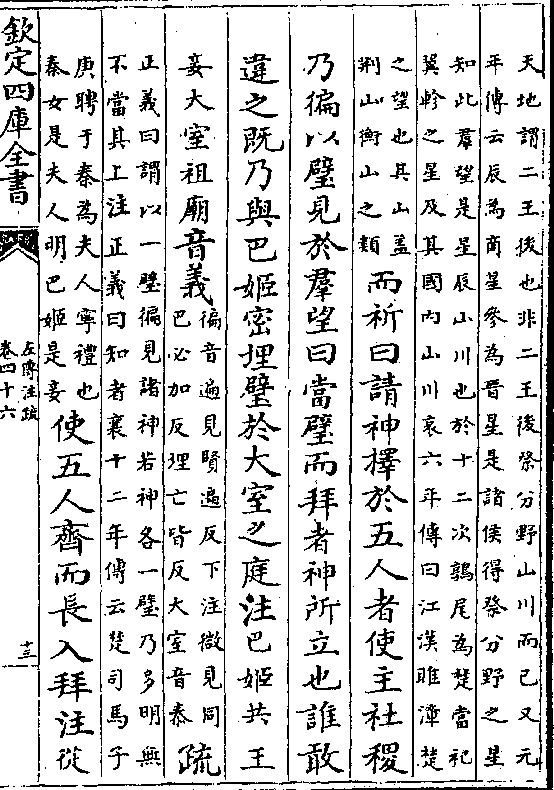 天地謂二王後也非二王後祭分野山川而已又元
年傳云辰為商星參為晉星是諸侯得祭分野之星
知此羣望是星辰山川也於十二次鶉尾為楚當祀
翼軫之星及其國內山川哀六年傳曰江漢雎漳楚
之望也其山蓋
荆山衡山之類
而祈曰請神擇於五人者使主社稷
乃徧以璧見於羣望曰當璧而拜者神所立也誰敢
違之既乃與巴姬密埋璧於大室之庭注巴姬共王
妾大室祖廟音義
徧音遍見賢遍反下注微見同
巴必加反埋亡皆反大室音泰
疏
正義曰謂以一璧徧見諸神若神各一璧乃多明無
不當其上注正義曰知者襄十二年傳云楚司馬子
庚聘于秦為夫人寧禮也
秦女是夫人明巴姬是妾
使五人齊而長入拜注從
欽定四庫全書
左傳注疏
卷四十六
十三